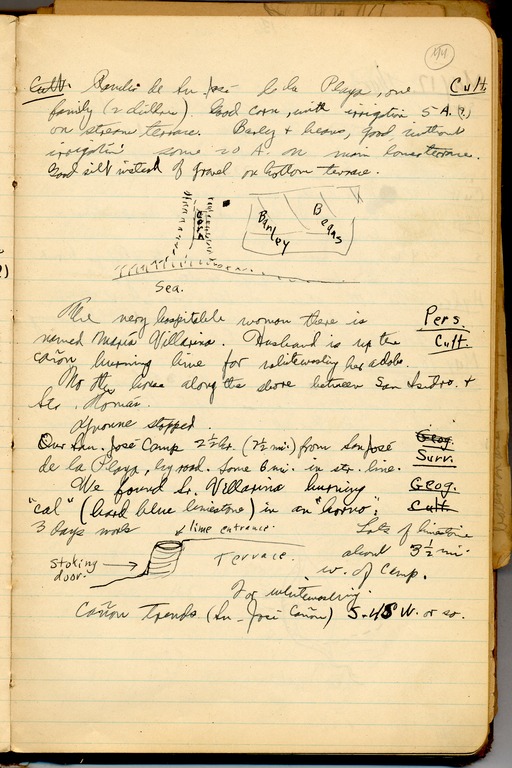 144
Cult. Rancho de Sn José de la Playa, one Cult.
family (2 dollars). Good corn, with irrigation 5 A. (?)
on stream terrace. Barley & beans, good without
irrigation some 20 A. on main lower terrace.
Good silt instead of gravel on bottom terrace.
Corn
Barley
Beans
Sea.
The very hospitable woman there is Pers.
named María Villarina. Husband is up the Cult.
cañon burning lime for whitewashing her adobe.
No other house along the shore between San Isidro &
Sto. Tomás.
stopped.
Our San José Camp 2½ hr. (7½ mi.) from San José Geog.
de la Playa, by road. Some 6 mi. in str. line. Surv.
We found Sr. Villarina burning Geog.
"cal" (hard blue limestone) in an "horno". Cult.
3 days work
lime entrance.
Lots of limestone
about 3½ mi.
w. of camp.
Stoking
door.
Terrace.
For whitewashing.
Cañon Trends (Sn José Cañon) S-45 W. or so.